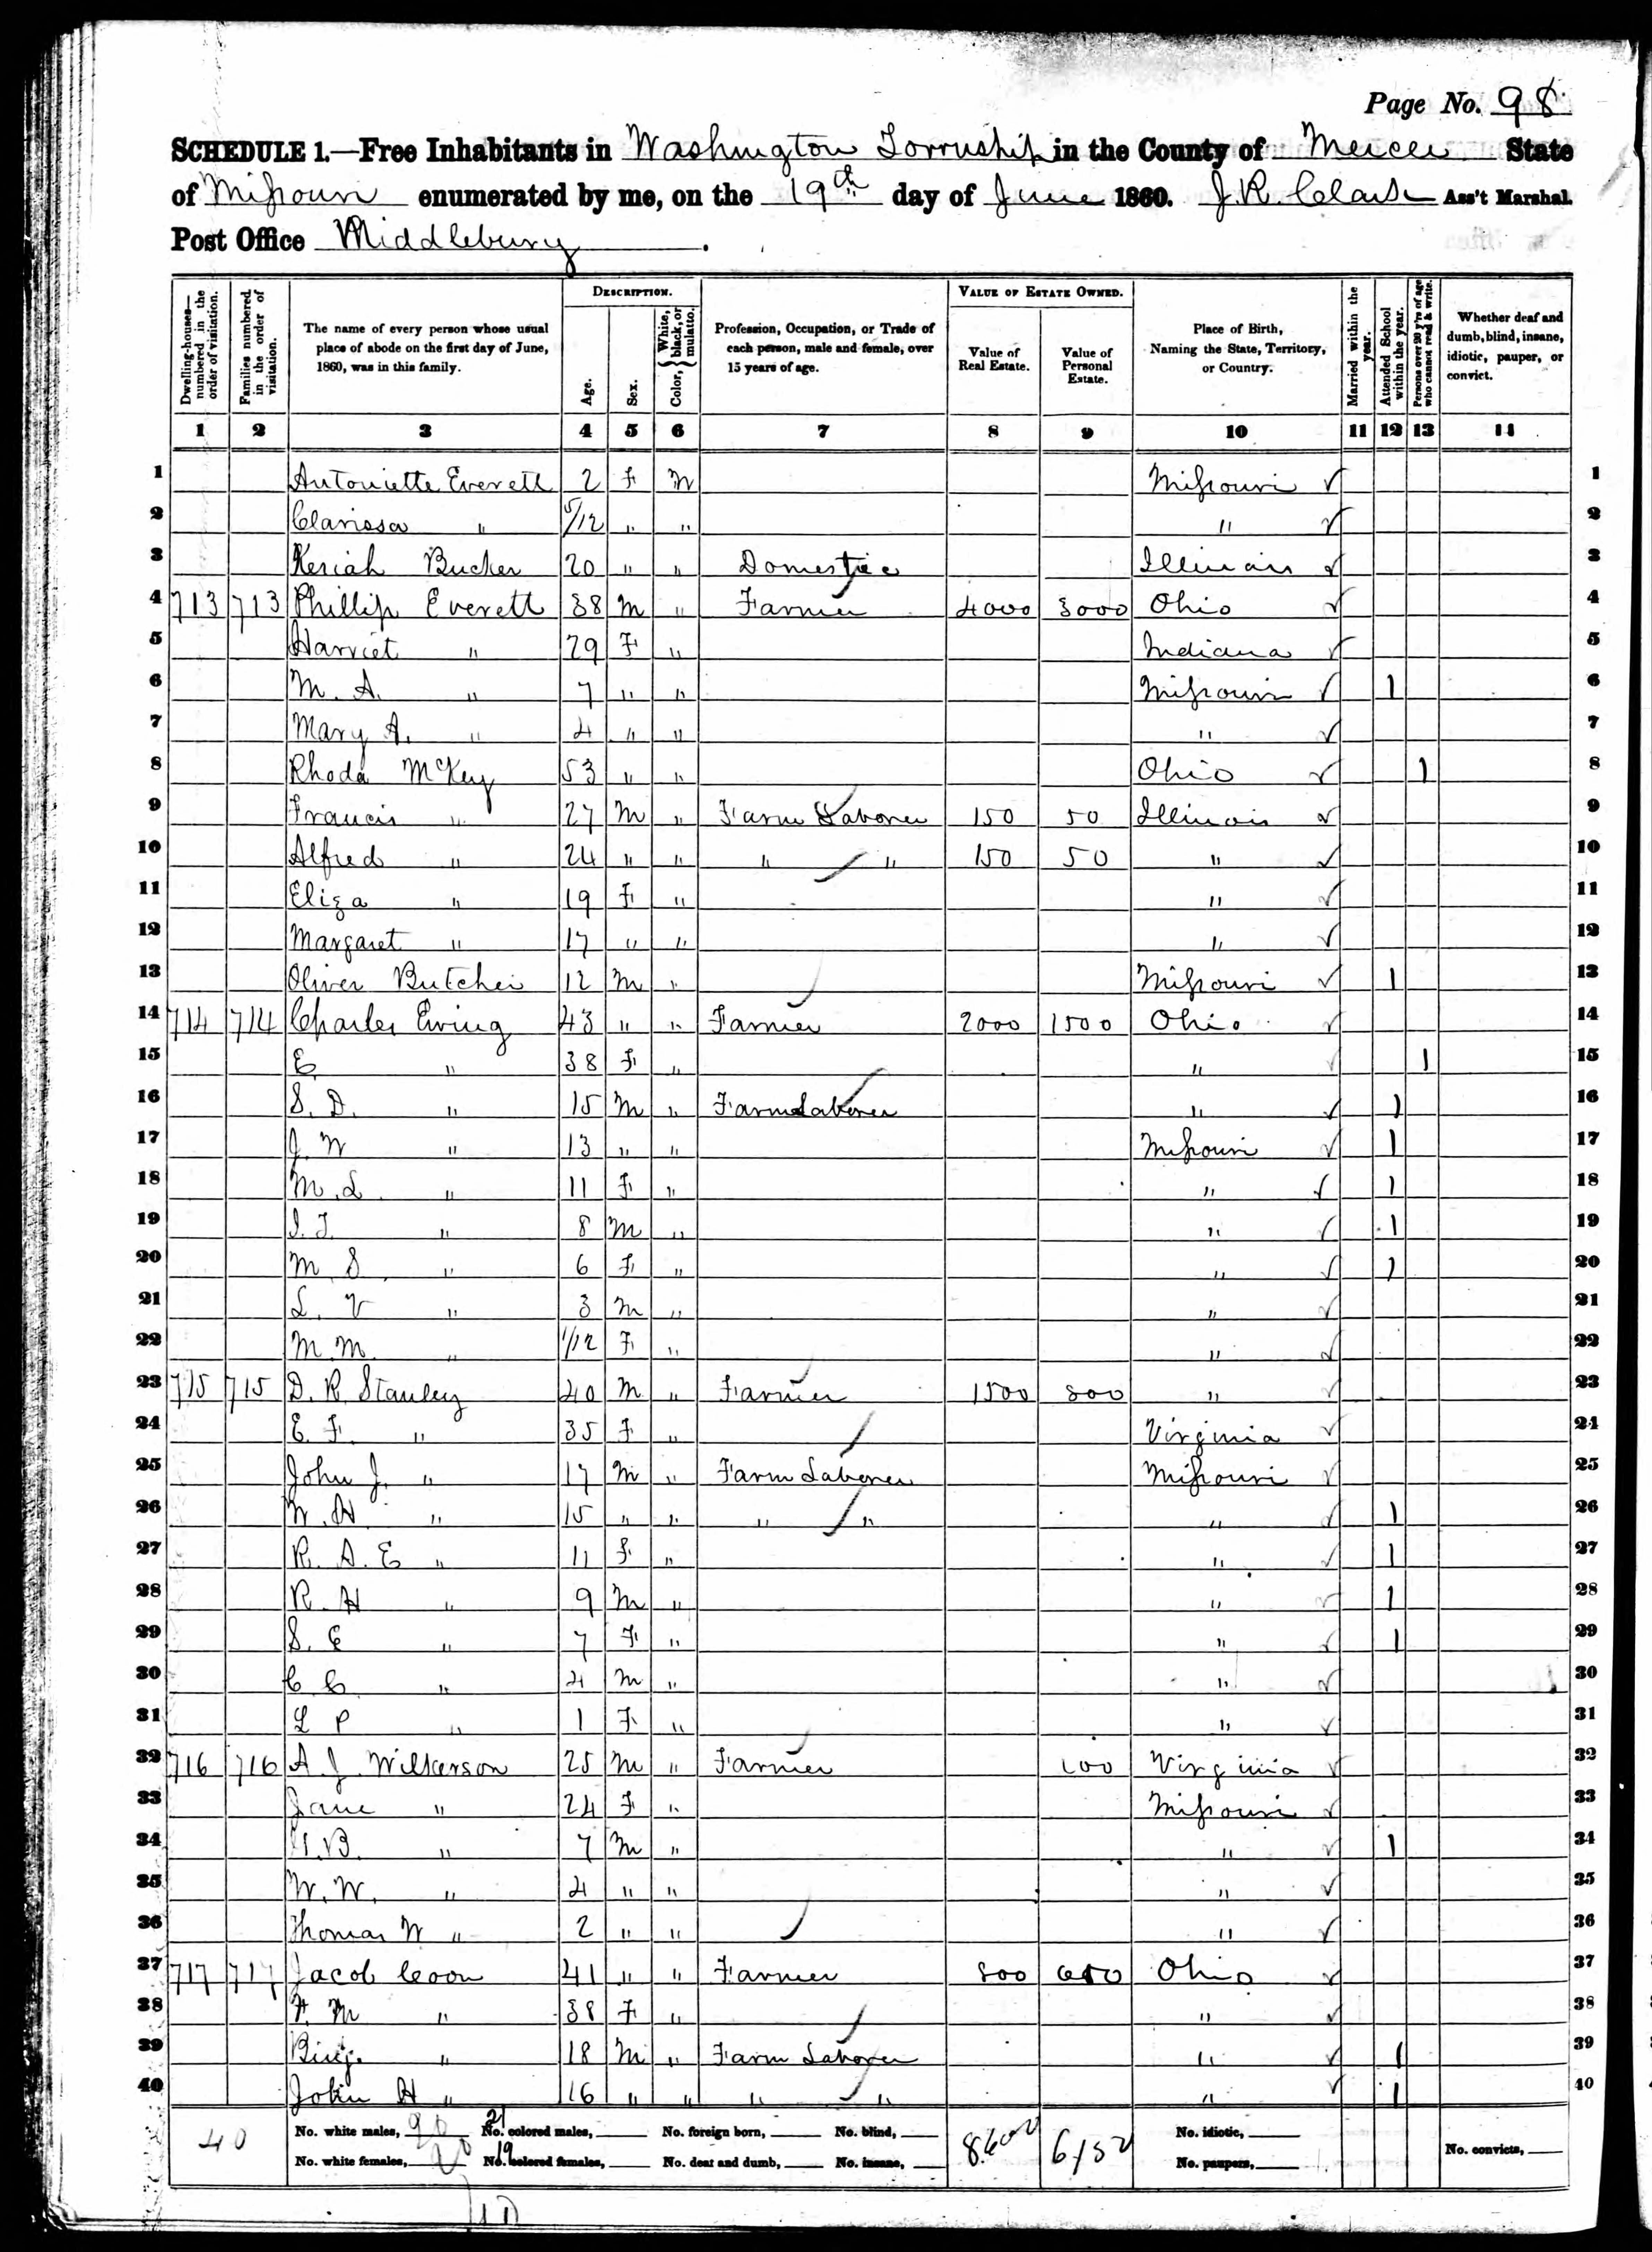 Page No. 98
SCHEDULE 1.—Free Inhabitants in Washington Township in the County of Mercer State
of Missouri enumerated by me, on the 19th day of June 1860. J. R. Clark Ass't Marshal.
Post Office Middlebury.
Dwelling-houses—numbered in the order of visitation.
Families numbered in the order of visitation.
The name of every person whose usual place of abode on the first day of June, 1860, was in this family.
DESCRIPTION.
Age.
Sex.
Color, { White, black, or mulatto.
Profession, Occupation, or Trade of each person, male and female, over 15 years of age.
VALUE OF ESTATE OWNED.
Value of Real Estate.
Value of Personal Estate.
Place of Birth, Naming the State, Territory, or Country.
Married within the year.
Attended School within the year.
Persons over 20 y'rs of age who cannot read & write.
Whether deaf and dumb, blind, insane, idiotic, pauper, or convict.
1 2 3 4 5 6 7 8 9 10 11 12 13 14
1 Antoniette Everett 2 F W Missouri 1
2 Clarissa " 5/12 " " " 2
3 Keziah Bucher 20 " " Domestic Illinois 3
4 713 713 Phillip Everett 38 M " Farmer 4000 3000 Ohio 4
5 Harriet " 29 F " Indiana 5
6 M. A. " 7 " " Missouri 1 6
7 Mary A. " 4 " " " 7
8 Rhoda McKey 53 " " Ohio 1 8
9 Francis " 27 M " Farm Laborer 150 50 Illinois 9
10 Alfred " 24 " " " " 150 50 " 10
11 Eliza " 19 F " " 11
12 Margaret " 17 " " " 12
13 Oliver Butcher 12 M " Missouri 1 13
14 714 714 Charles Ewing 43 " " Farmer 2000 1500 Ohio 14
15 E " 38 F " " 1 15
16 S. D. " 15 M " Farm Laborer " 1 16
17 J. W " 13 " " Missouri 1 17
18 M. L " 11 F " " 1 18
19 " 8 M " " 1 19
20 M S " 6 F " " 1 20
21 L. V " 3 M " " 21
22 M. M. " 1/12 F " " 22
23 715 715 D. R Stanley 40 M " Farmer 1500 800 " 23
24 E. F. " 35 F " Virginia 24
25 John J. " 17 M " Farm Laborer Missouri 25
26 W. H " 15 " " " " " 1 26
27 R. A. E " 11 F " " 1 27
28 R. H " 9 M " " 1 28
29 S. E " 7 F " " 1 29
30 C C " 4 M " " 30
31 L P " 1 F " " 31
32 716 716 A. J. Wilkerson 25 M " Farmer 100 Virginia 32
33 Jane " 24 F " Missouri 33
34 B. " 7 M " " 1 34
35 W. W. " 4 " " " 35
36 Thomas W " 2 " " " 36
37 717 717 Jacob Coon 41 " " Farmer 800 Ohio 37
38 M " 38 F " " 38
39 Binj. " 18 M " Farm Laborer " 1 39
40 John H " 16 " " " " " 1 40
40 No. white males, 20 21 No. colored males, No. foreign born, No. blind, 8600 No. idiotic,
No. white females, 20 19 No. colored females, No. deaf and dumb, No. insane, No. paupers, No. convicts,